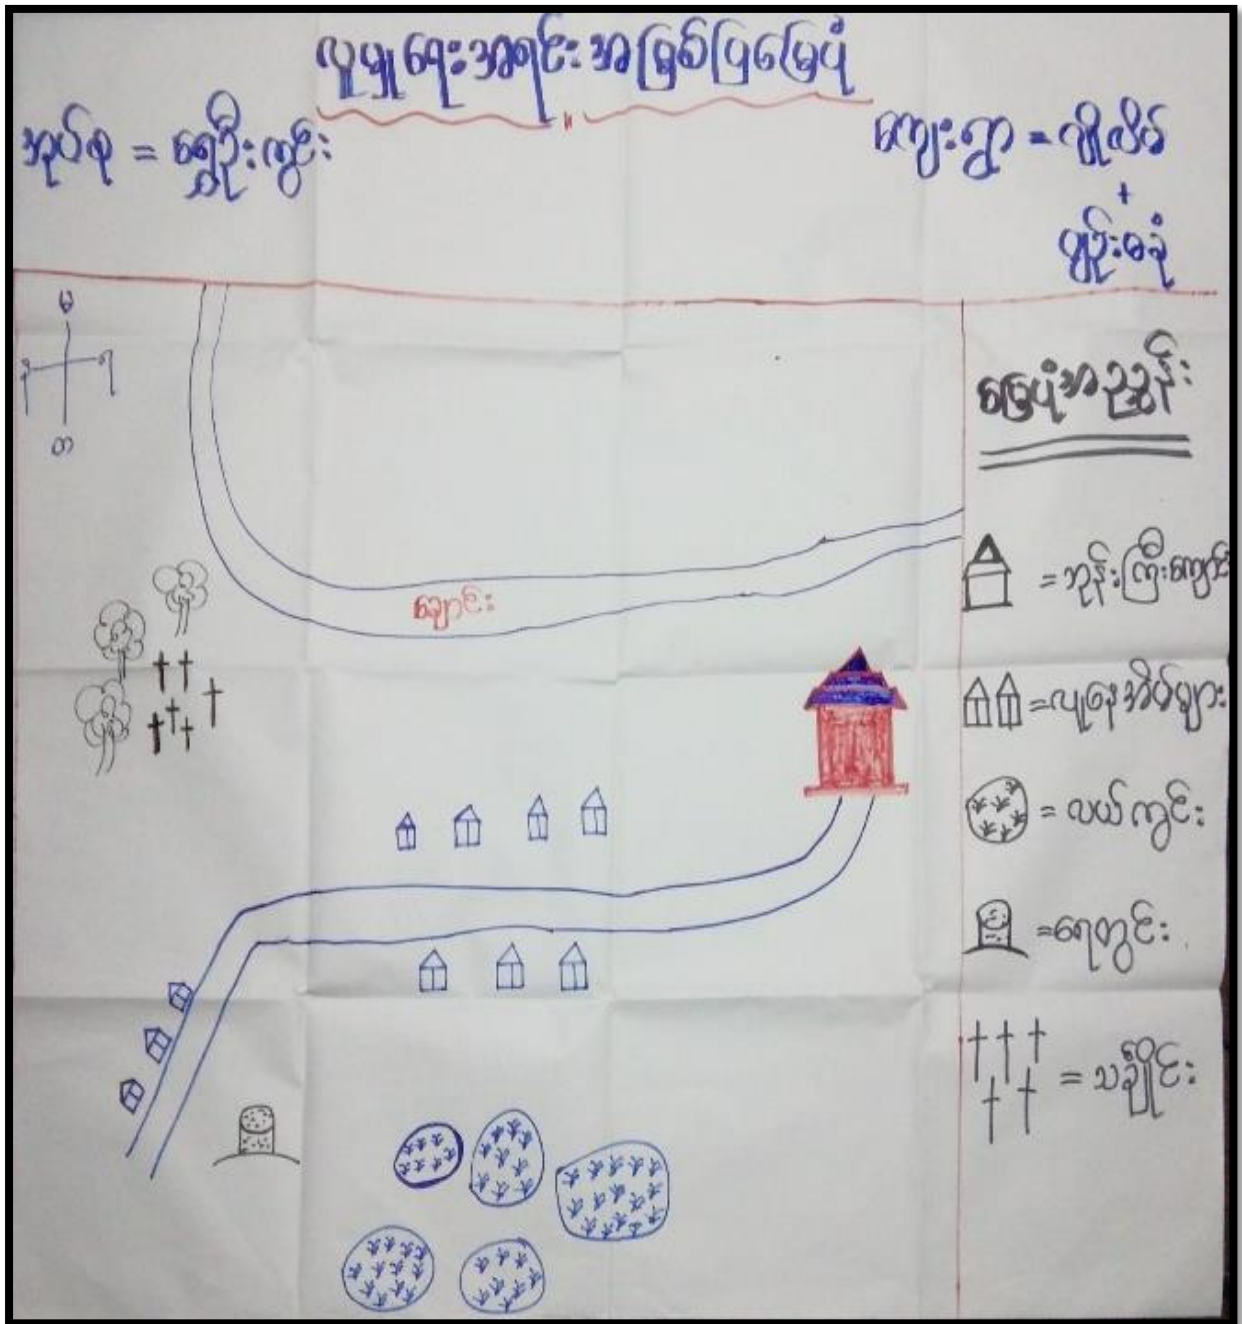 လူမှုရေးအရင်းအမြစ်ပြမြေပုံ
အုပ်စု = ရွှေဦးကွင်း
ကျေးရွာ = ကျိုလိပ်
+
ပျဉ်းမခုံ
မ
န ရ
တ
မြေပုံအညွှန်း
= ဘုန်းကြီးကျောင်း
ချောင်း
= လူနေအိမ်များ
= လယ်ကွင်း
= ရေတွင်း
= သင်္ချိုင်း